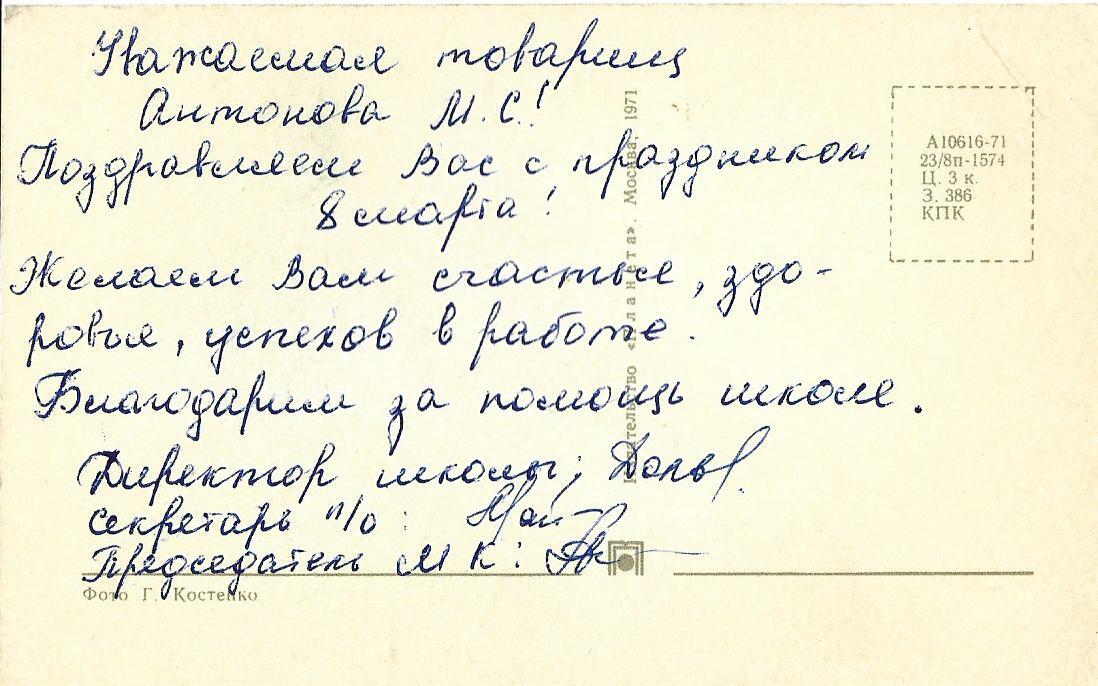 Уважаемая товарищ
Антонова М. С.!
Поздравляем Вас с праздником
8 марта!
Желаем Вам счастья, здо-
ровья, успехов в работе.
Благодарим за помощь школе.
Директор школы:
секретарь п/о:
Председатель МК:
Фото Г. Костенко
Издательство «Планета». Москва, 1971
А10616-71
23/8п-1574
Ц. 3 к.
З. 386
КПК